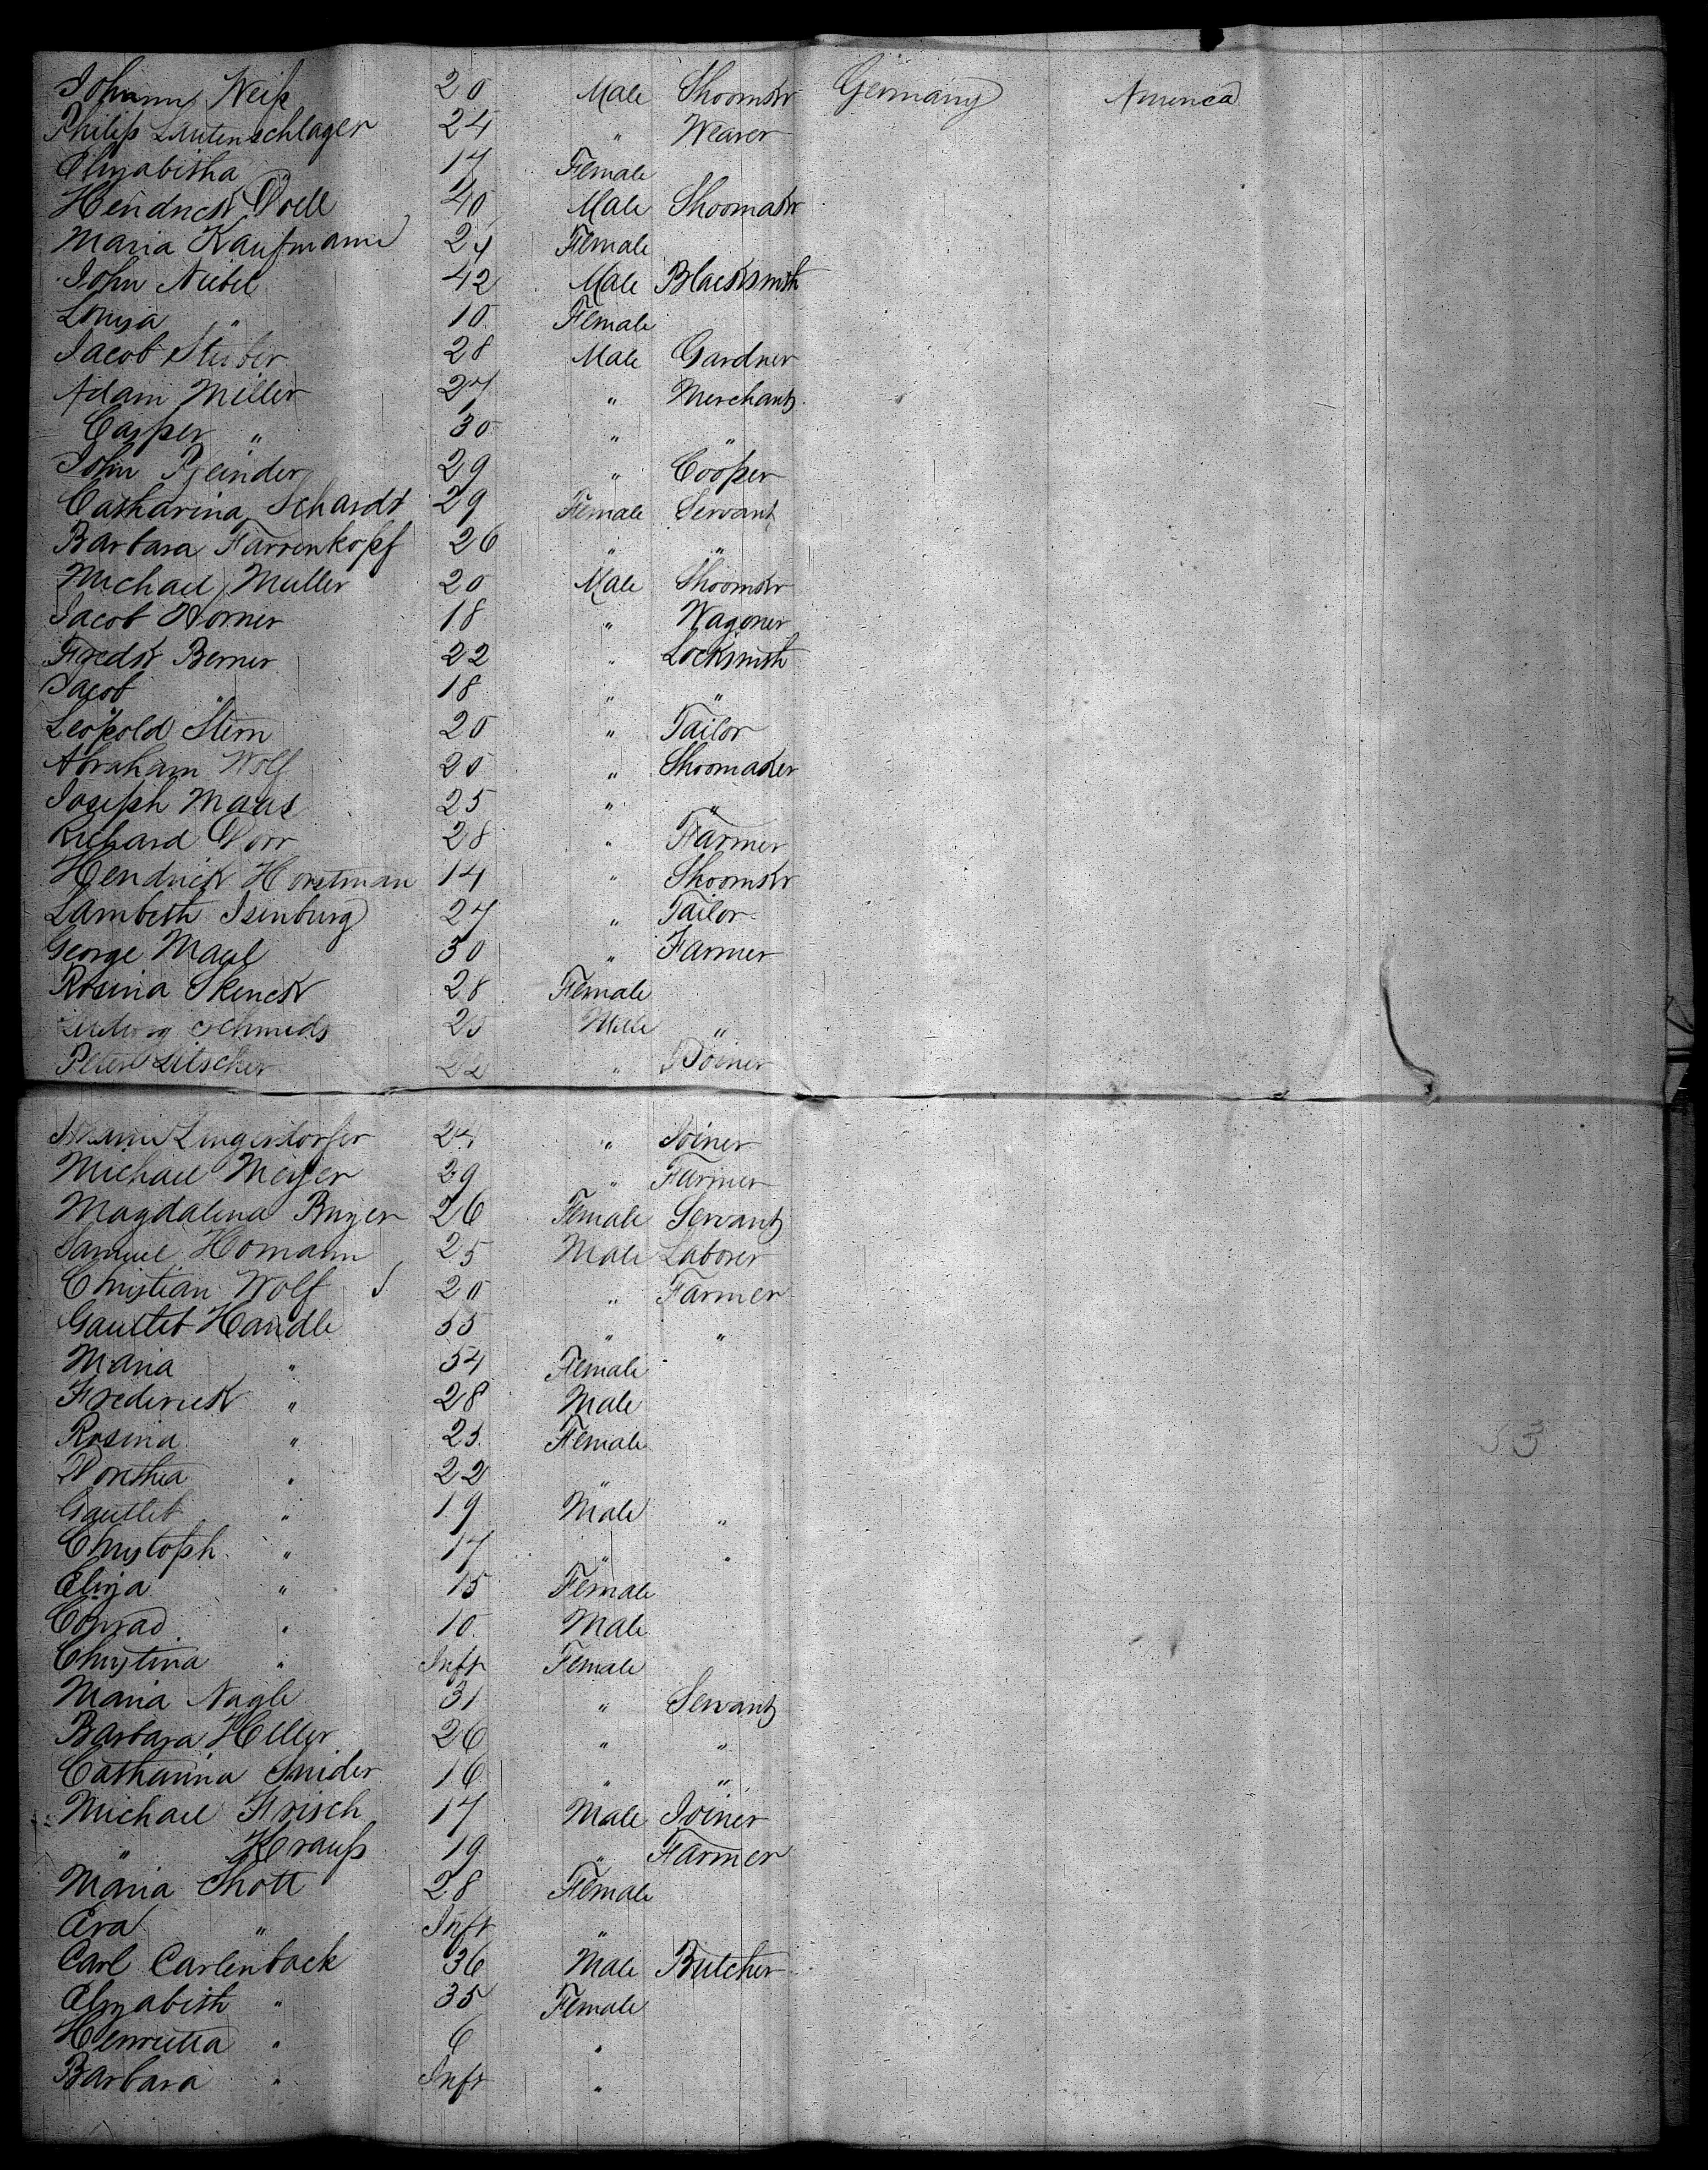 Johann Weiß 20 Male Shoomkr Germany America
Philip Lautenschlager 24 " Weaver
Elizabitha " 17 Female
Hendrick Doell 40 Male Shoomakr
Maria Kaufmann 24 Female
John Neibel 42 Male Blacksmith
Louisa " 10 Female
Jacob Stuber 28 Male Gardner
Adam Miller 27 " Merchant
Casper " 30 " "
John 29 " Cooper
Catharina Schardt 29 Female Servant
Barbara Farrenkopf 26 " "
Michael Muller 20 Male Shoomkr
Jacob Horner 18 " Wagoner
Fredk Berner 22 " Locksmith
Jacob " 18 " "
Leopold Stern 20 " Tailor
Abraham Wolf 20 " Shoomaker
Joseph Maas 25 " "
Richard Dorr 28 " Farmer
Hendrick Horstman 14 " Shoomkr
Lambeth Isenburg 27 " Tailor
George Maul 30 " Farmer
Rosina Skenck 28 Female
Ludwig Schmids 25 Male "
Peter Litscher 22 " Joiner
Lingersdorfer 27 " Joiner
Michael Meyer 29 " Farmer
Magdalena 26 Female Servant
Samuel Homann 25 Male Laborer
Christian Wolf 20 " Farmer
Gautleb Handle 55 " "
Maria " 54 Female
Frederick " 28 Male
Rosina " 23 Female
Dorethea " 22 "
Gautleb " 19 Male "
Christoph " 17 " "
Eliza " 15 Female
Conrad " 10 Male
Christina " Inft Female
Maria Nagle 31 " Servant
Barbara Heller 26 " "
Catharina Snider 16 " "
Michael Frisch 17 Male Joiner
" Krauß 19 " Farmer
Maria Shott 28 Female
Eva " Inft "
Carl Carlenback 36 Male Butcher
Elizabith " 35 Female
Henrietta " 6 "
Barbara " Inft "